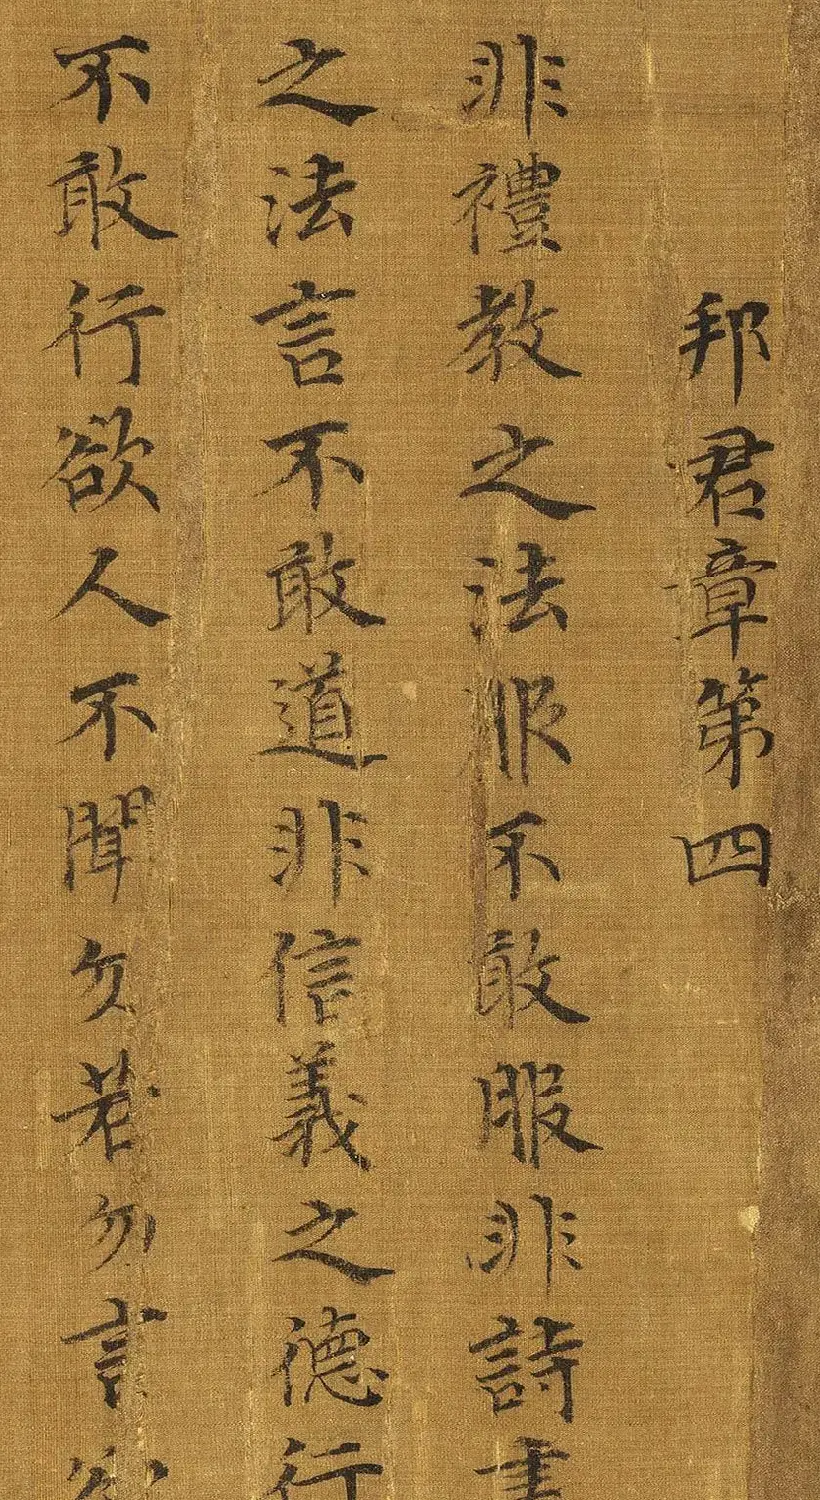 邦君章第四
非禮教之法服不敢服非詩書
之法言不敢道非信義之德行
不敢行欲人不聞勿若勿言欲